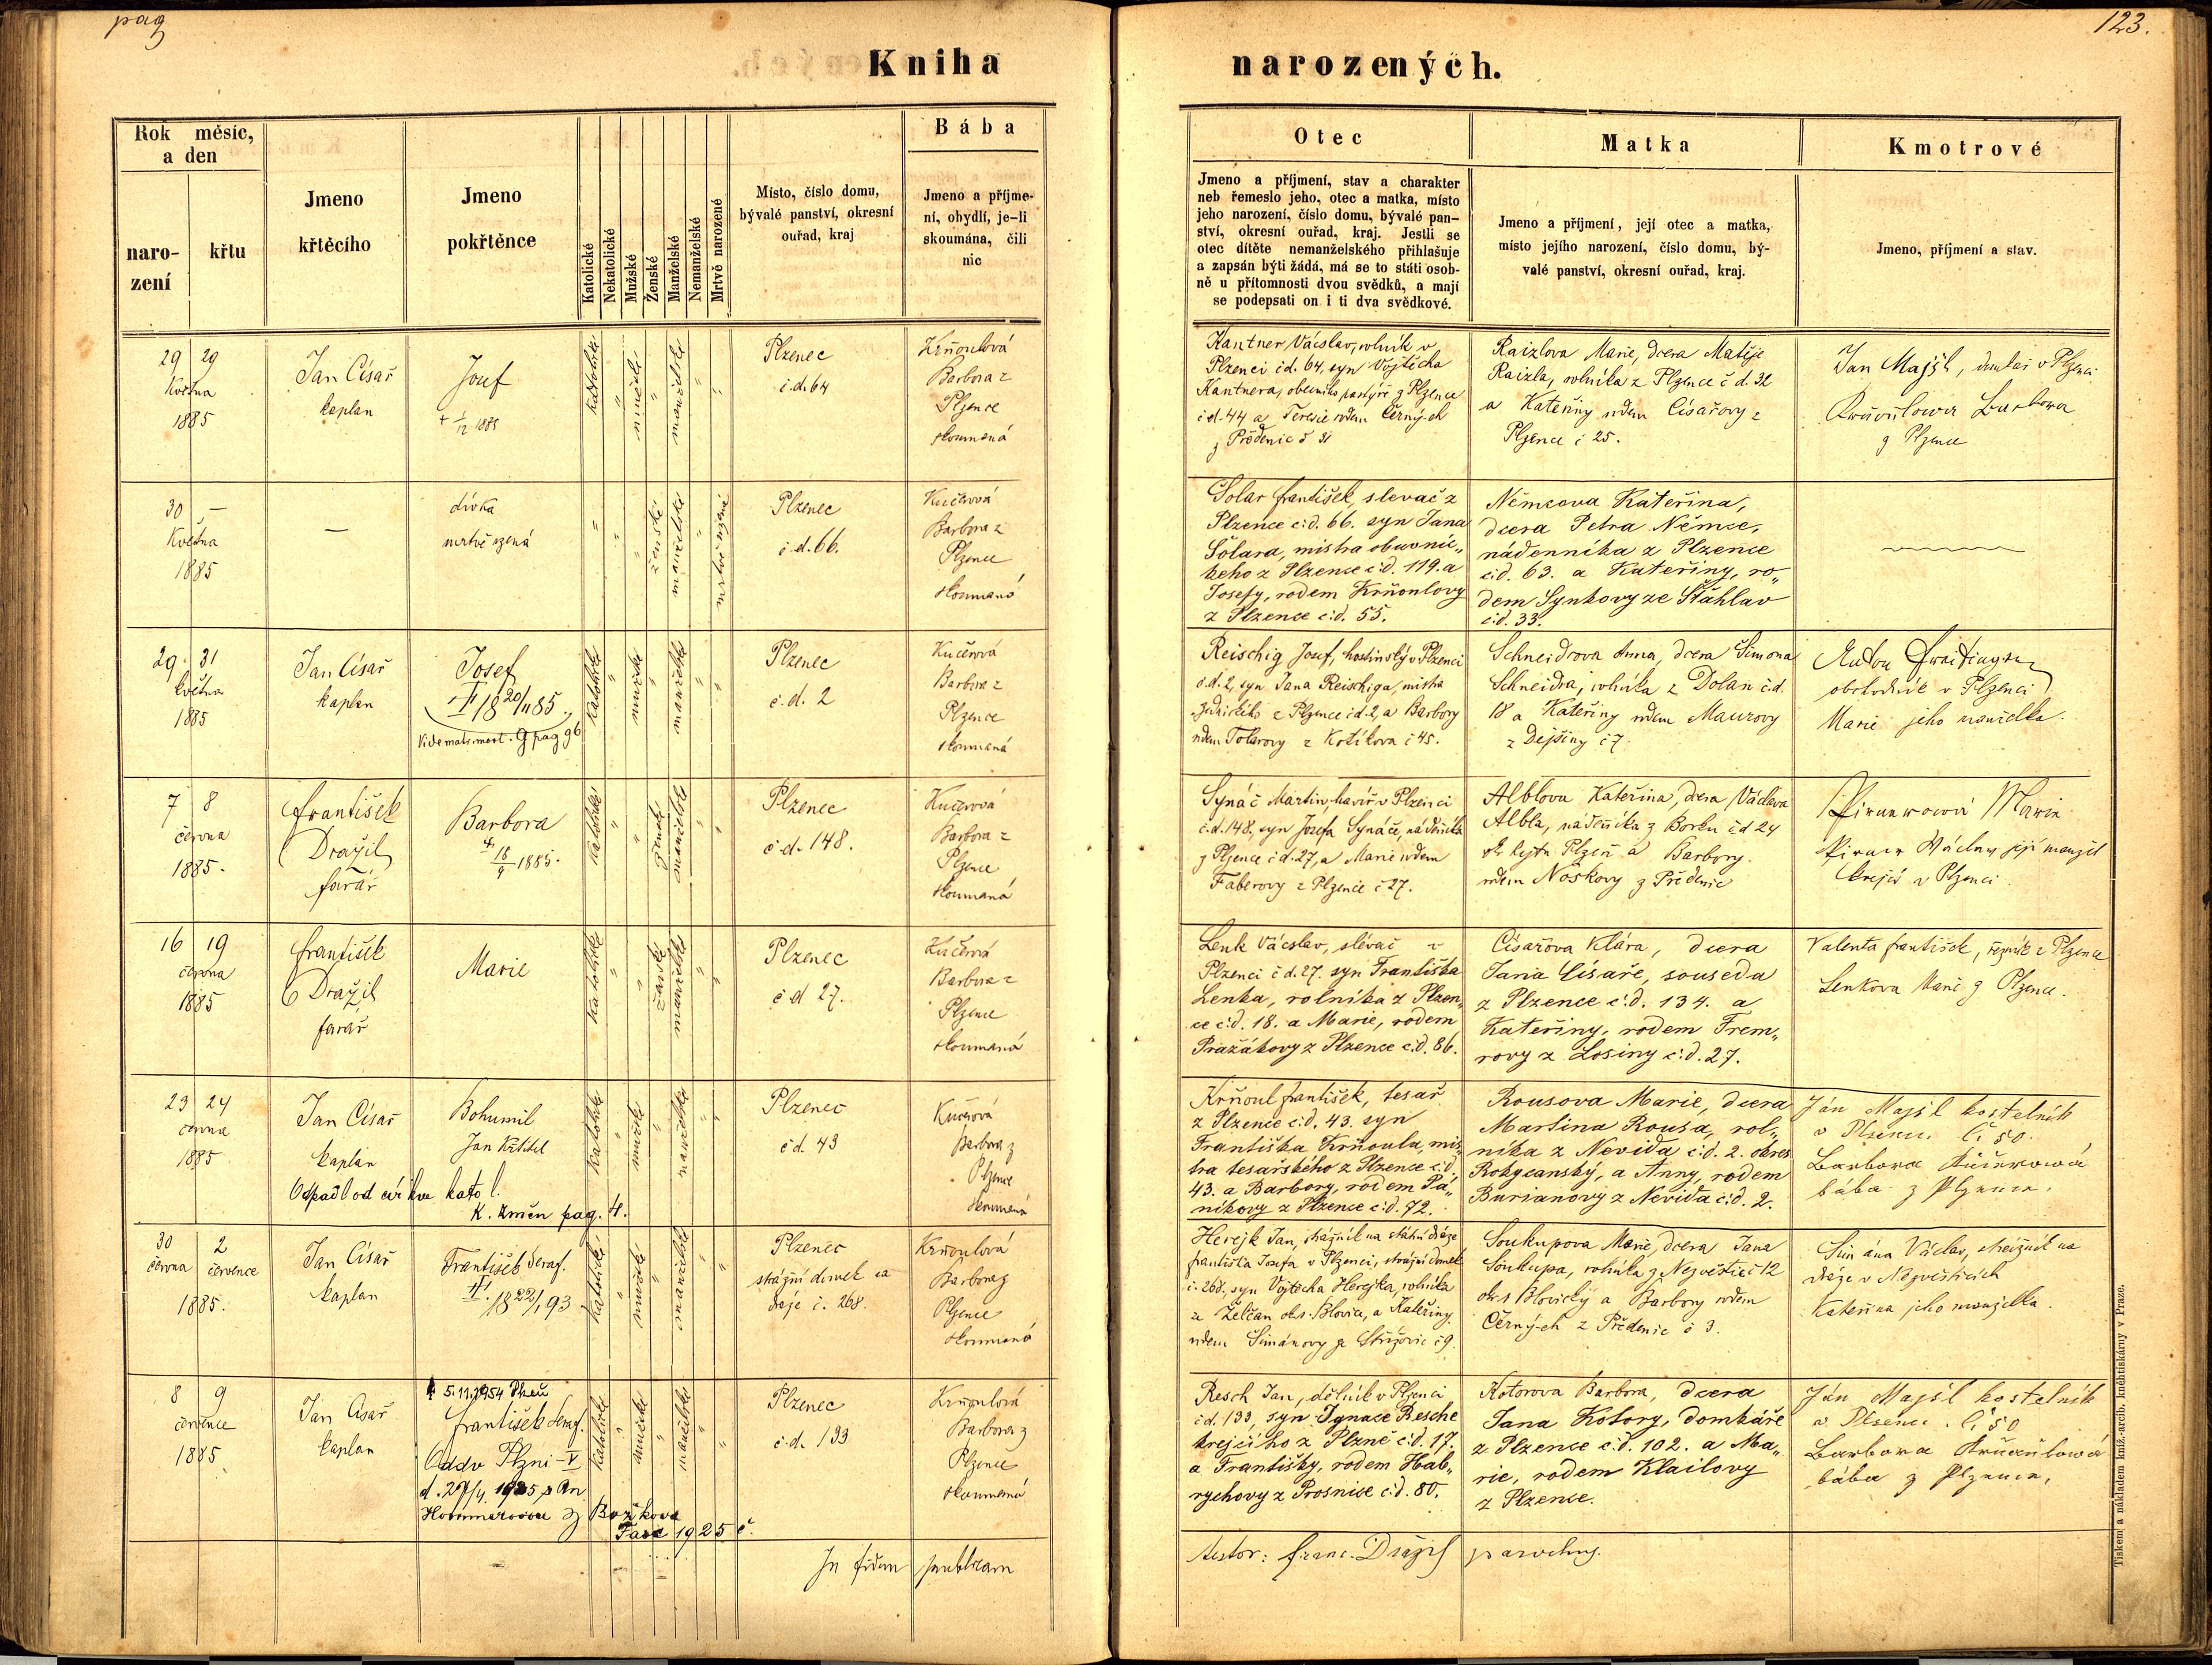 pag
123.
Kniha narozených.
Rok měsíc, a den
naro-
zení
křtu
Jmeno
křtěcího
Jmeno
pokřtěnce
Katolické
Nekatolické
Mužské
Ženské
Manželské
Nemanželské
Mrtvě narozené
Místo, číslo domu,
bývalé panství, okresní
ouřad, kraj
Bába
Jmeno a příjme-
ní, obydlí, je-li
skoumána, čili
nic
Otec
Jmeno a příjmení, stav a charakter
neb řemeslo jeho, otec a matka, místo
jeho narození, číslo domu, bývalé pan-
ství, okresní ouřad, kraj. Jestli se
otec dítěte nemanželského přihlašuje
a zapsán býti žádá, má se to státi osob-
ně u přítomnosti dvou svědků, a mají
se podepsati on i ti dva svědkové.
Matka
Jmeno a příjmení, její otec a matka,
místo jejího narození, číslo domu, bý-
valé panství, okresní ouřad, kraj.
Kmotrové
Jmeno, příjmení a stav.
29 29
Května
1885
Jan Císař
kaplan
Josef
+ 1/12 1885
Plzenec
č.d. 64
Krňoulová
Barbora z
Plzence
skoumaná
Kantner Václav, rolník v
Plzenci č.d. 64, syn Vojtěcha
Kantnera, obecního pastýře z Plzence
č.d. 44 a Terezie rodem Černých
z Předenic č 31
Raizlova Marie, dcera Matěje
Raizla, rolníka z Plzence č d. 32
a Kateřiny rodem Císařovy z
Plzence č 25.
Jan Majšl, v Plzenci
Krňoulowa Barbora
z Plzence
30 —
Května
1885
—
dívka
mrtvě rozená
Plzenec
č.d. 66.
Kučerová
Barbora z
Plzence
skoumaná
Šolar František, slevač z
Plzence č:d. 66. syn Jana
Šolara, mistra obuvnic„
kého z Plzence č:d. 119. a
Josefy, rodem Krňoulovy
z Plzence č:d. 55.
Němcova Kateřina,
dcera Petra Němce,
nádenníka z Plzence
č:d. 63. a Kateřiny, ro„
dem Synkovy ze Štáhlav
č:d. 33.
29 31
května
1885
Jan Císař
kaplan
Josef
† 18 20/11 85.
Vide matr. mort. G pag 96
Plzenec
č.d. 2
Kučerová
Barbora z
Plzence
skoumaná
Reischig Josef, hostinský v Plzenci
č.d. 2, syn Jana Reischiga, mistra
zednického z Plzence č.d. 2, a Barbory
rodem Tolarovy z Kotíkova č 45.
Schneidrova Anna, dcera Šimona
Schneidra, rolníka z Dolan č.d.
18 a Kateřiny rodem Maurovy
z Dejšiny č 7.
obchodník v Plzenci
Marie jeho manželka.
7 8
června
1885.
František
Dražil
farář
Barbora
† 18/9 1885.
Plzenec
č.d. 148.
Kučerová
Barbora z
Plzence
skoumaná
Synáč Martin, havíř v Plzenci
č.d. 148, syn Josefa Synáče, nádeníka
z Plzence č d. 27, a Marie rodem
Faberovy z Plzence č 27.
Alblova Kateřina, dcera Václava
Albla, nádeníka z Borku č d 24
Plzeň a Barbory
rodem Noskovy z Předenic
Marie
její manžel
krejčí v Plzenci.
16 19
června
1885
František
Dražil
farář
Marie
Plzenec
č d 27.
Kučerová
Barbora z
Plzence
skoumaná
Lenk Václav, slévač v
Plzenci č d. 27. syn Františka
Lenka, rolníka z Plzen„
ce č:d. 18. a Marie, rodem
Pražákovy z Plzence č:d. 86.
Císařova Klára, dcera
Jana Císaře, souseda
z Plzence č:d. 134. a
Kateřiny, rodem Trem„
rovy z Losiny č:d. 27.
Valenta František, řezník z Plzence
Lenkova Marie z Plzence.
23 24
června
1885
Jan Císař
kaplan
Bohumil
Jan Křtitel
Odpadl od církve katol.
K. změn pag. 4.
Plzenec
č d. 43
Kučerová
Barbora z
Plzence
skoumaná
Krňoul František, tesař
z Plzence č:d. 43. syn
Františka Krňoula, mis„
tra tesařského z Plzence č:d.
43. a Barbory, rodem Pá„
níkovy z Plzence č:d. 72.
Rousova Marie, dcera
Martina Rousa, rol„
níka z Nevida č:d. 2. okres
Rokycanský, a Anny, rodem
Burianovy z Nevida č:d. 2.
Ján Majšl kostelník
v Plzenci. č: 50.
Barbora Kučerowá
bába z Plzence.
30 2
června července
1885.
Jan Císař
kaplan
František Seraf.
† 18 22/1 93
Plzenec
strážní domek na
dráze č. 268.
Krňoulová
Barbora z
Plzence
skoumaná
Herejk Jan, strážník na státní dráze
Františka Josefa v Plzenci, strážní domek
č. 268, syn Vojtěcha Herejka, rolníka
ze Želčan okr. Blovice, a Kateřiny
rodem Šimánovy ze Střížovic č 9.
Soukupova Marie, dcera Jana
Soukupa, rolníka z Nezvěstic č 12
okres Blovický a Barbory rodem
Černých z Předenic č 3.
Šimána Václav, strážník na
dráze v Nezvěsticích
Kateřina jeho manželka.
8 9
července
1885
Jan Císař
kaplan
† 5.11.1954 Plzeň
František Seraf.
Oddv Plzni - V
d. 27/4. 1925 s An.
Hammerovou z Božkova
Fasc 1925 č.
Plzenec
č.d. 133
Krňoulová
Barbora z
Plzence
skoumaná
Resch Jan, dělník v Plzenci
č d. 133, syn Ignace Resche
krejčího z Plzně č:d. 17.
a Františky, rodem Hab„
rychovy z Prosnice č:d. 80.
Kotorova Barbora, dcera
Jana Kotory, domkáře
z Plzence č:d. 102. a Ma„
rie, rodem Klailovy
z Plzence.
Ján Majšl kostelník
v Plzenci. č: 50
Barbora Krňoulowá
bába z Plzence.
In fidem publicam
testor: Franc. Dražil parochus.
Tiskem a nákladem kníž.-arcib. knihtiskárny v Praze.